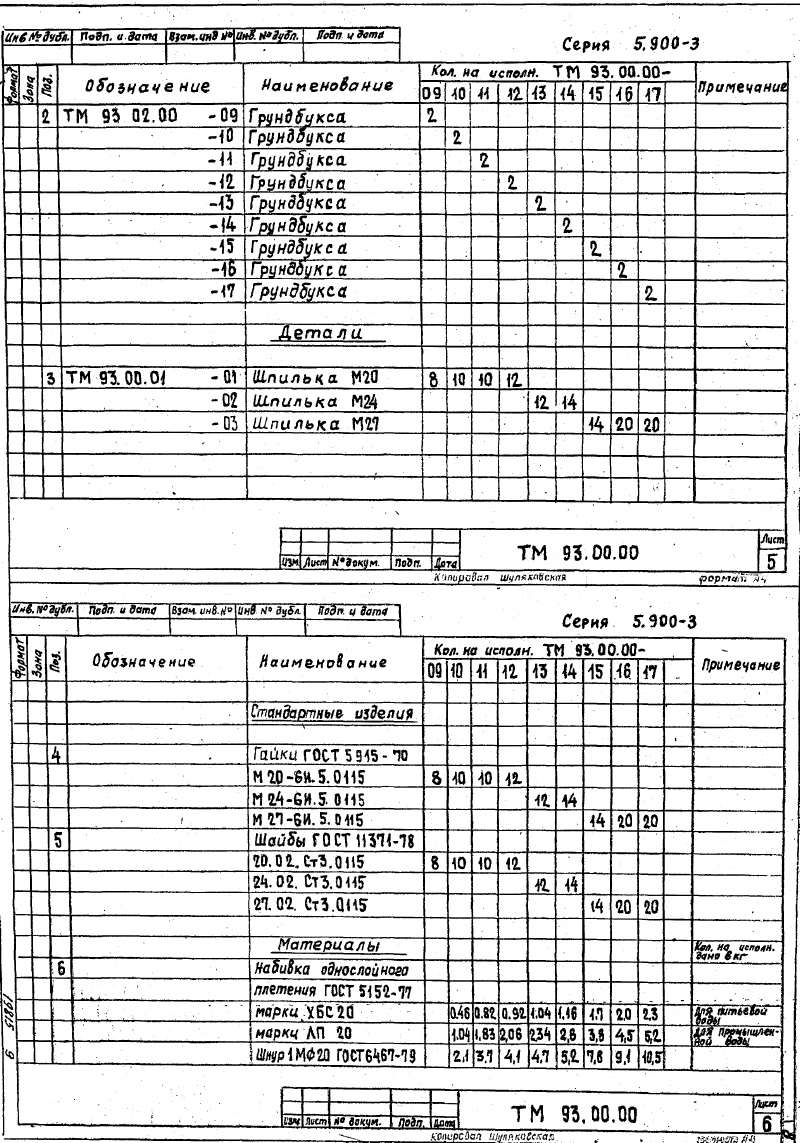 Инв № дубл. Подп. и дата Взам. инв № Инв. № дубл. Подп. и дата
Серия 5.900-3
Формат Зона Поз. Обозначение Наименование Кол. на исполн. ТМ 93.00.00- Примечание
09 10 11 12 13 14 15 16 17
2 ТМ 93 02.00 -09 Грундбукса 2
-10 Грундбукса 2
-11 Грундбукса 2
-12 Грундбукса 2
-13 Грундбукса 2
-14 Грундбукса 2
-15 Грундбукса 2
-16 Грундбукса 2
-17 Грундбукса 2
Детали
3 ТМ 93.00.01 -01 Шпилька М20 8 10 10 12
-02 Шпилька М24 12 14
-03 Шпилька М27 14 20 20
Изм Лист № докум. Подп. Дата
ТМ 93.00.00
Лист
5
Копировал Шуляковская формат А4
Инв. № дубл. Подп. и дата Взам. инв. № Инв № дубл. Подп. и дата
Серия 5.900-3
Формат Зона Поз. Обозначение Наименование Кол. на исполн. ТМ 93.00.00- Примечание
09 10 11 12 13 14 15 16 17
Стандартные изделия
4 Гайки ГОСТ 5915-70
М 20-6И.5.0115 8 10 10 12
М 24-6И.5.0115 12 14
М 27-6И.5.0115 14 20 20
5 Шайбы ГОСТ 11371-78
20.02. Ст3.0115 8 10 10 12
24.02. Ст3.0115 12 14
27.02. Ст3.0115 14 20 20
Материалы Кол. на исполн. дано в кг
6 Набивка однослойного
плетения ГОСТ 5152-77
марки ХБС 20 0.46 0.82 0.92 1.04 1.16 1.7 2.0 2.3 Для питьевой воды
марки ЛП 20 1.04 1,83 2,06 2.34 2,6 3,8 4,5 5,2 Для промышленной воды
Шнур 1 МФ20 ГОСТ 6467-79 2,1 3,7 4,1 4,7 5,2 7,6 9,1 10,5
19815 9
Изм Лист № докум. Подп. Дата
ТМ 93.00.00
Лист
6
Копировал Шуляковская